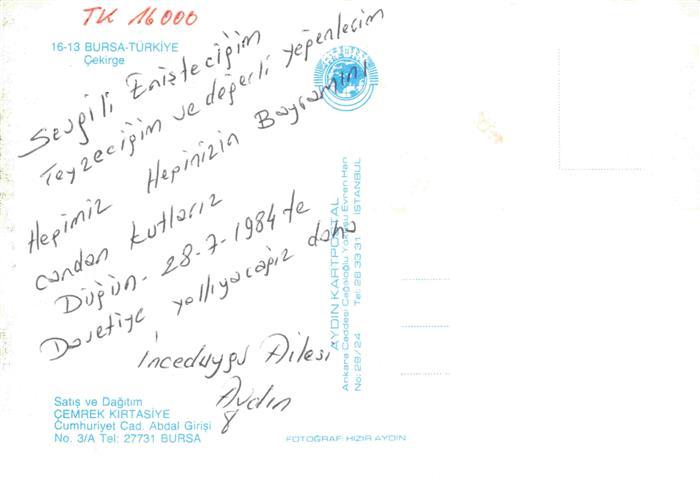 TK 16000
16-13 BURSA-TÜRKİYE
Çekirge
Sevgili Enişteciğim
Teyzeciğim ve değerli yeğenlerim
Hepimiz Hepinizin Bayramını
candan kutlarız
Düğün - 28-7-1984 te
Davetiye yollıyacağız daha
İnceduygu Ailesi
Aydın
AYDIN KARTPOSTAL
Ankara Caddesi Cağaloğlu Yokuşu Evren Han
No: 29/24 Tel: 28 33 31 İSTANBUL
Satış ve Dağıtım
ÇEMREK KIRTASİYE
Cumhuriyet Cad. Abdal Girişi
No. 3/A Tel: 27731 BURSA
FOTOĞRAF: HIZIR AYDIN